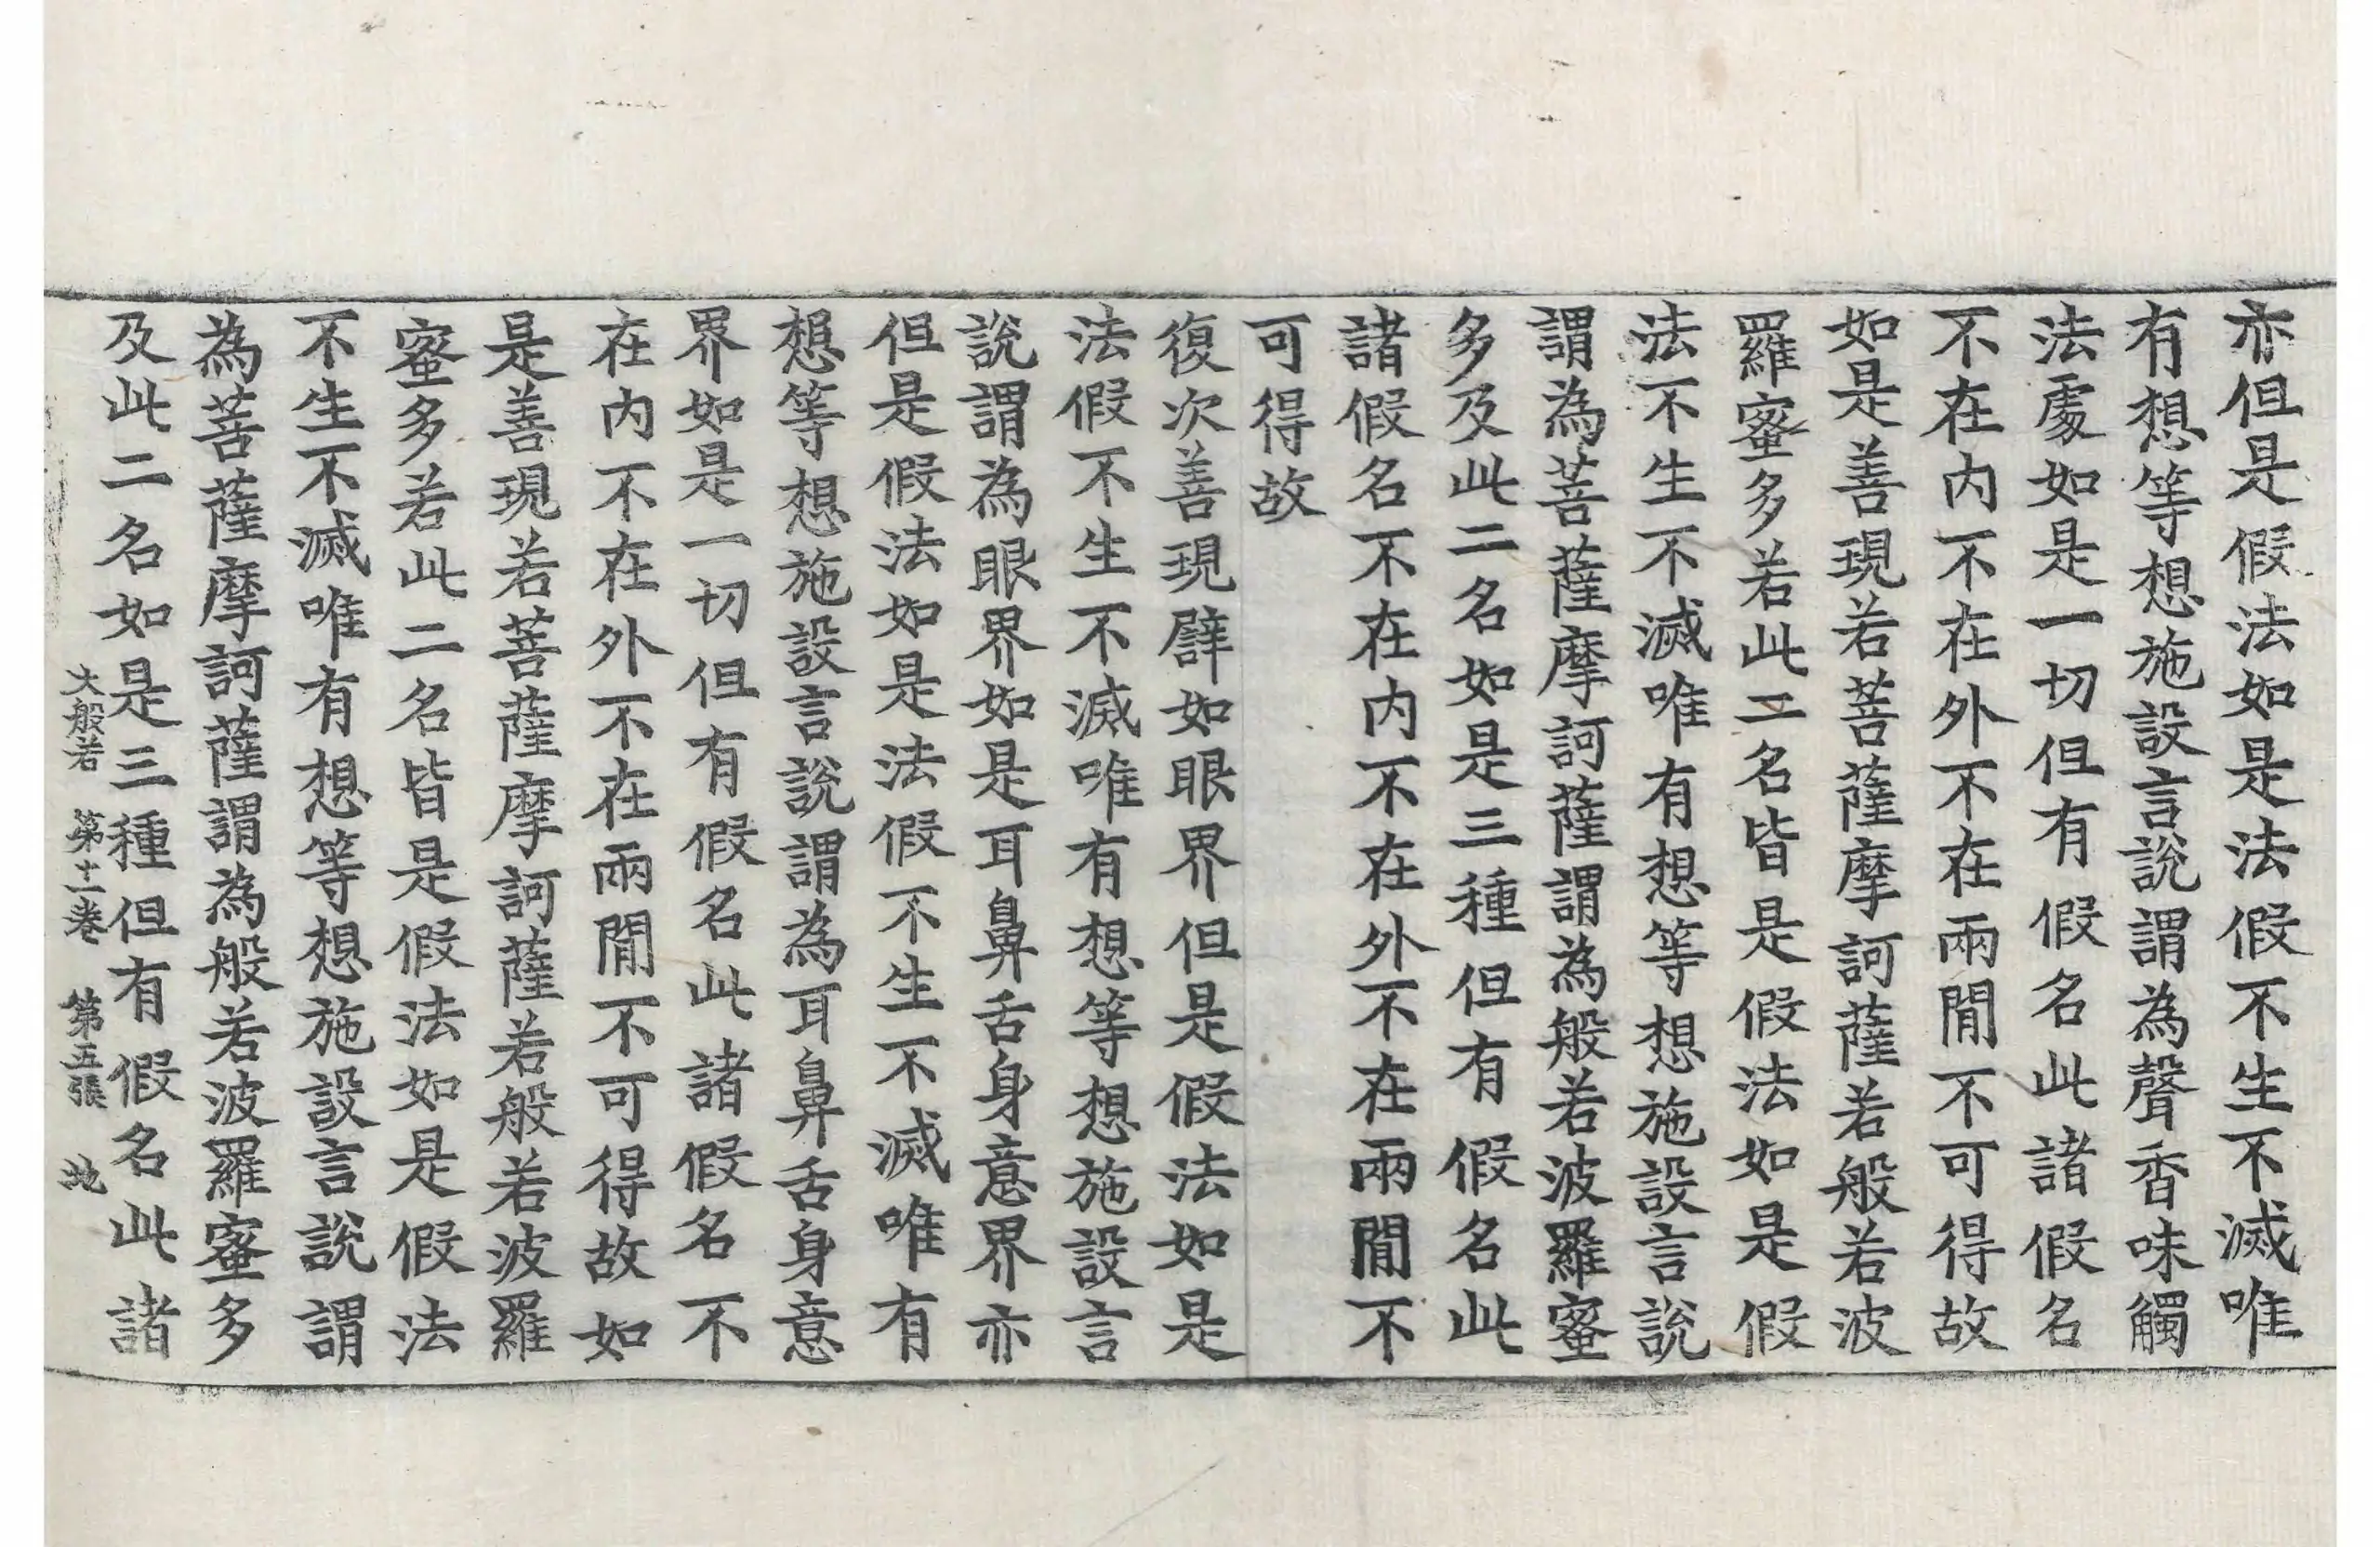 亦但是假法如是法假不生不滅唯
有想等想施設言說謂為聲香味觸
法處如是一切但有假名此諸假名
不在內不在外不在兩閒不可得故
如是善現若菩薩摩訶薩若般若波
羅蜜多若此二名皆是假法如是假
法不生不滅唯有想等想施設言說
謂為菩薩摩訶薩謂為般若波羅蜜
多及此二名如是三種但有假名此
諸假名不在內不在外不在兩閒不
可得故
復次善現譬如眼界但是假法如是
法假不生不滅唯有想等想施設言
說謂為眼界如是耳鼻舌身意界亦
但是假法如是法假不生不滅唯有
想等想施設言說謂為耳鼻舌身意
界如是一切但有假名此諸假名不
在內不在外不在兩閒不可得故如
是善現若菩薩摩訶薩若般若波羅
蜜多若此二名皆是假法如是假法
不生不滅唯有想等想施設言說謂
為菩薩摩訶薩謂為般若波羅蜜多
及此二名如是三種但有假名此諸
大般若 第十一卷 第五張 地